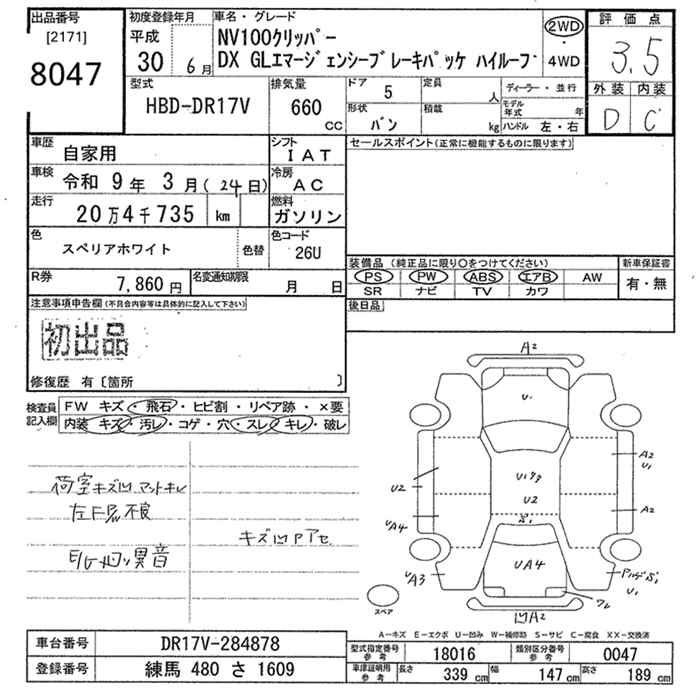 出品番号
[2171]
8047
初度登録年月
平成
30 6月
車名・グレード
NV100クリッパー
DX GLエマージェンシーブレーキパッケ ハイルーフ
2WD
4WD
評価点
3.5
外装 内装
D C
型式
HBD-DR17V
排気量
660
CC
ドア
5
定員
人
形状
バン
積載
kg
ディーラー・並行
モデル年式 年
ハンドル 左・右
車歴
自家用
シフト
IAT
車検
令和 9年 3月(24日)
冷房
AC
走行
20万4千735 km
燃料
ガソリン
色
スペリアホワイト
色替
色コード
26U
R券
7,860円
名変通知期限
月 日
セールスポイント(正常に機能するものに限ります)
装備品 (純正品に限り○をつけてください)
PS PW ABS エアB AW
SR ナビ TV カワ
新車保証書
有・無
後日品
注意事項申告欄(不具合内容等は具体的に記入して下さい)
初出品
修復歴 有〔箇所 〕
検査員記入欄
FW キズ・飛石・ヒビ割・リペア跡・×要
内装 キズ・汚レ・コゲ・穴・スレ・キレ・破レ
荷室キズ凹マットキレ
キズ凹
異音
A2
U
A2
U1
U2
U2
A2
UA4
UA4
UA3
U1
凹A2
スペア
A-キズ E-エクボ U-凹み W-補修跡 S-サビ C-腐食 XX-交換済
車台番号
DR17V-284878
登録番号
練馬 480 さ 1609
型式指定番号
参考
18016
類別区分番号
参考
0047
車庫証明用
参考
長さ
339 cm
幅
147 cm
高さ
189 cm